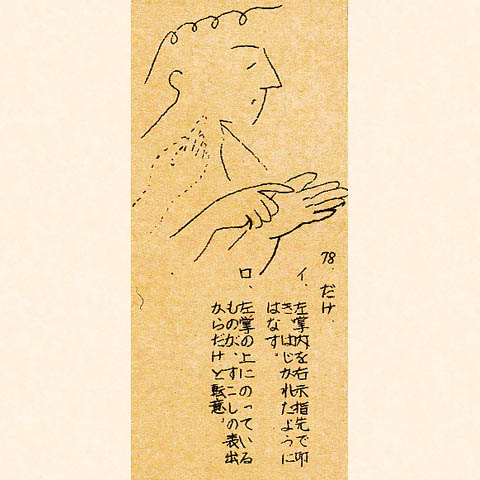 78. だけ.
イ. 左掌内を右示指先で叩
き、はじかれたように
はなす。
ロ、左掌の上にのっている
ものが、すこしの表出
からだけと転意。